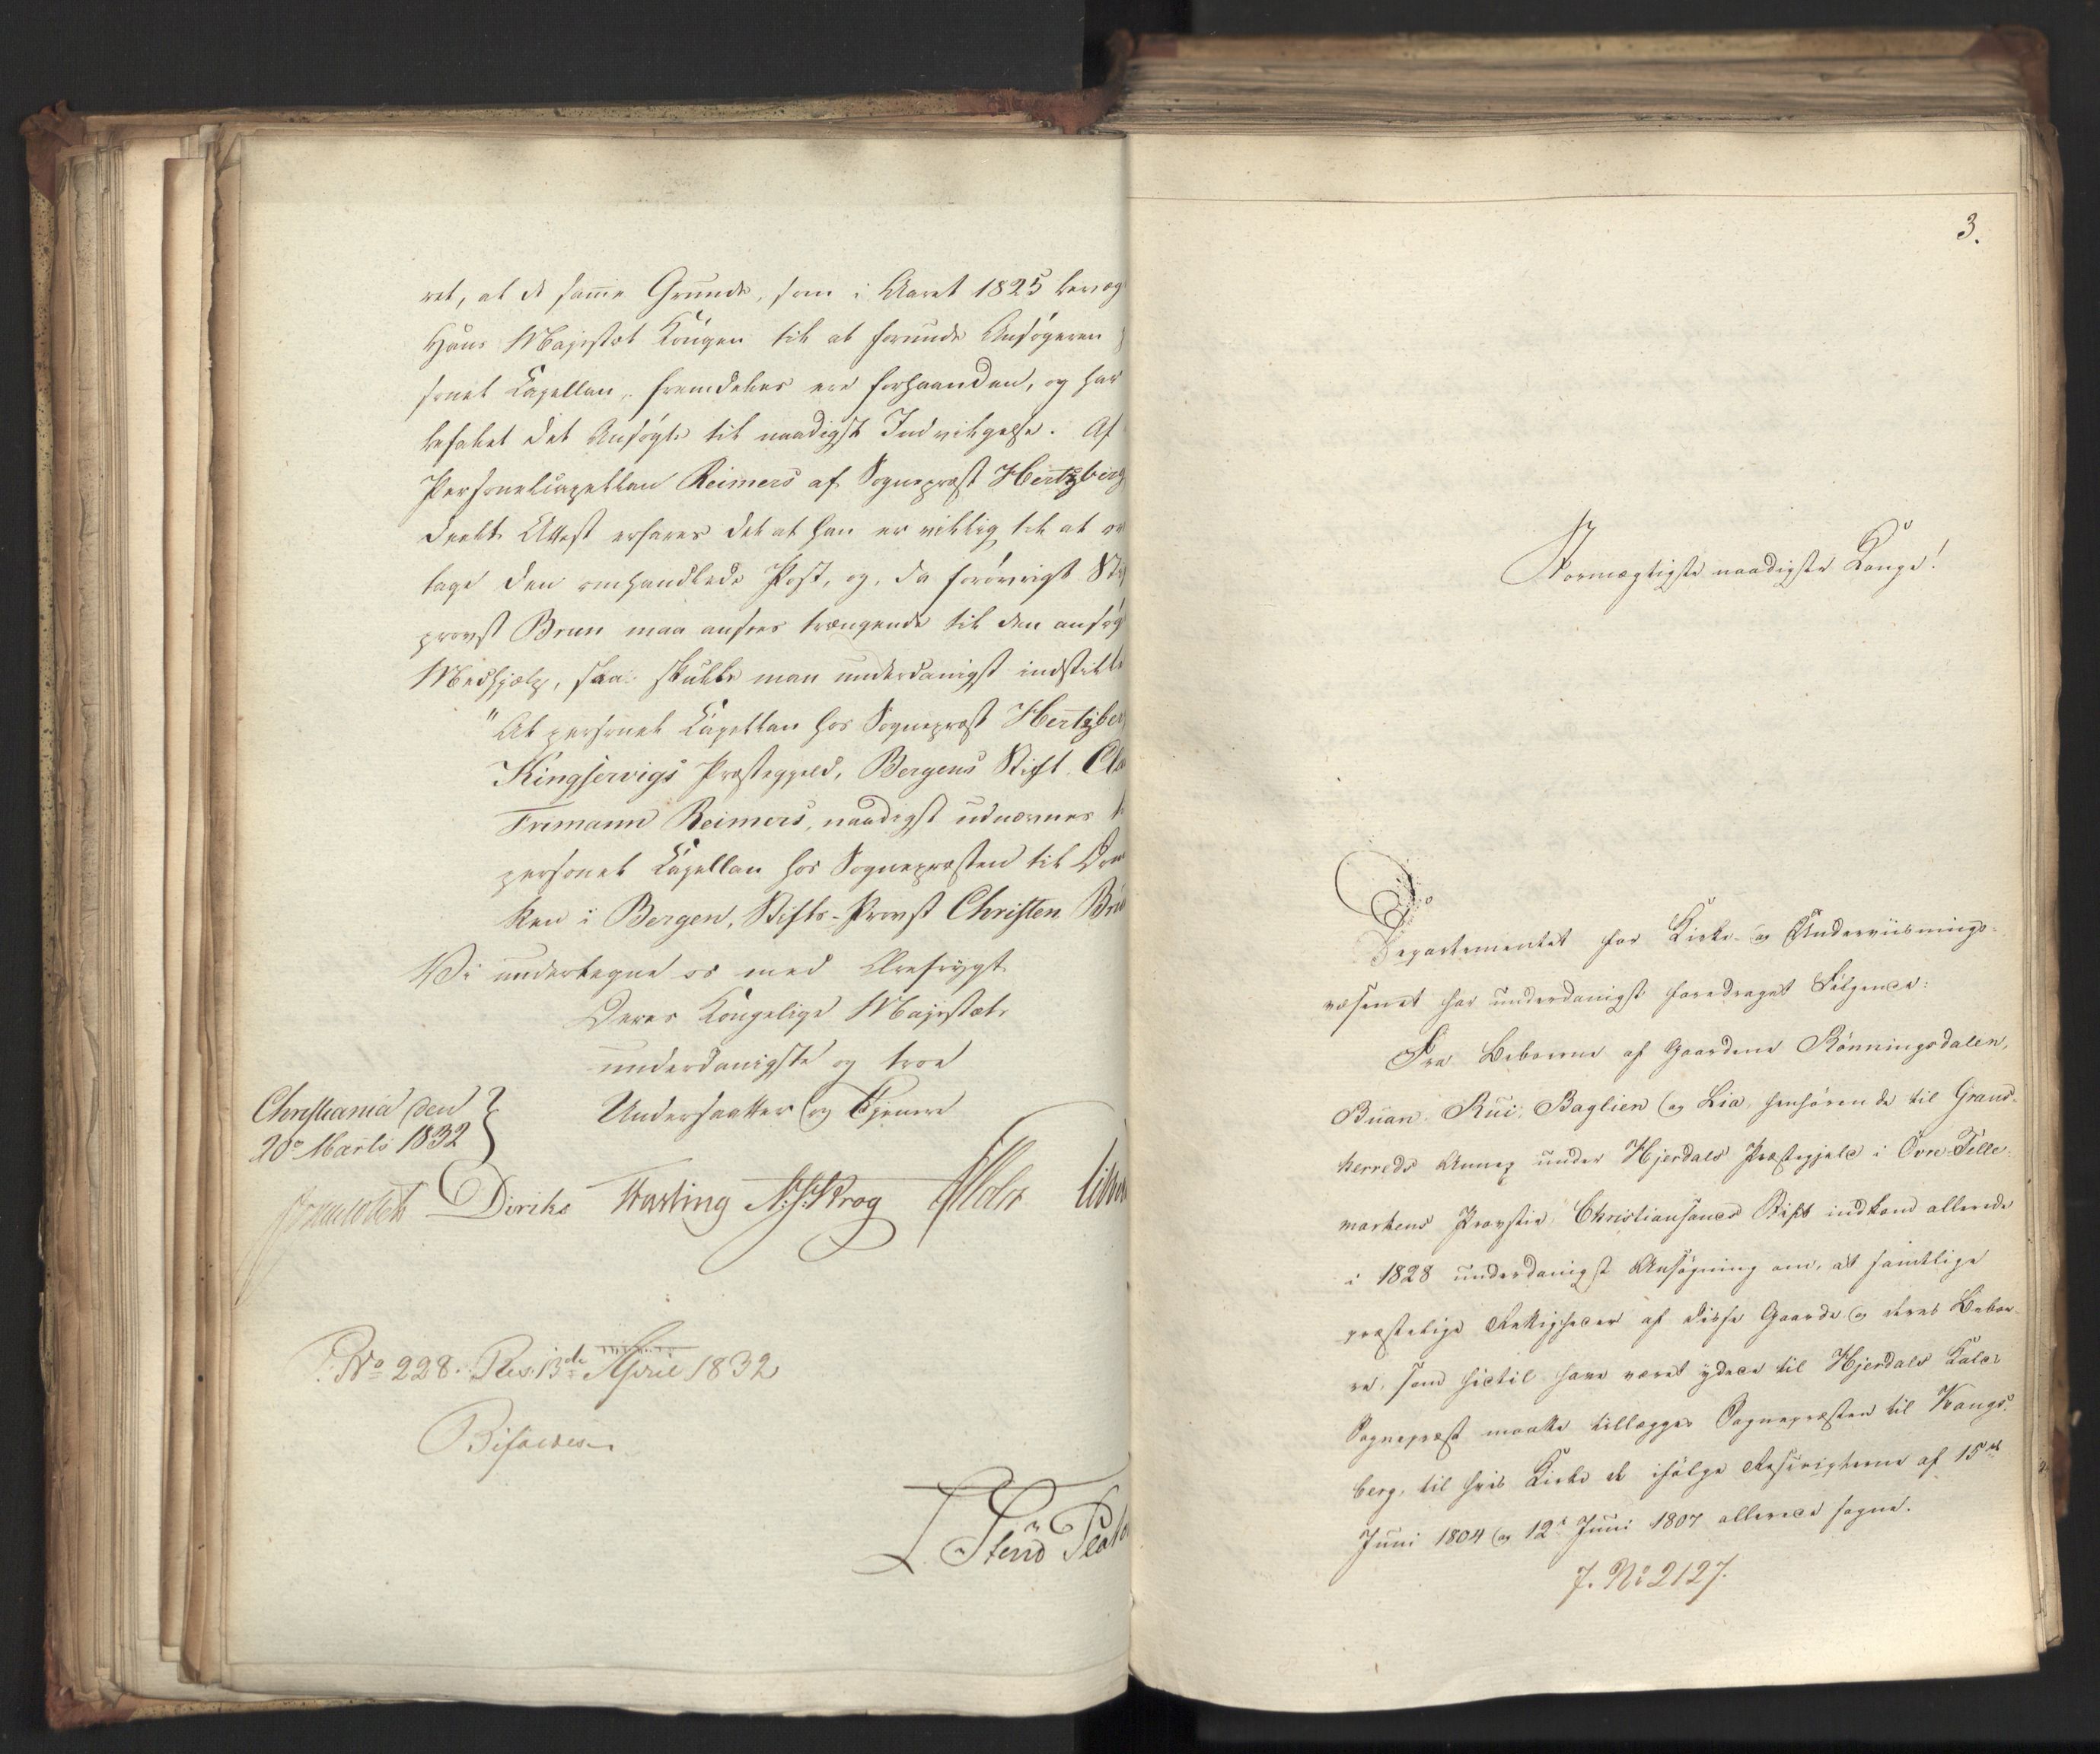 ret, at de samme Grunde, som i Aaret 1825 bevæg
Hans Majestæt Kongen til at forunde Ansøgeren
sonel Capellan, fremdeles ere forhaanden, og har
befalet det Ansøgte til naadigst Indvilgelse. Af
Personelcapellan Reimers af Sognepræst Hertzberg
deelt Attest erfares det at han er villig til at
tage den omhandlede Post, og, da forøvrigt
provst Brun maa ansees trængende til den ansøg
Medhjælp, saa skulle man underdanigst indstille
"At personel Capellan hos Sognepræst Hertzber
Kingservigs Præstegjeld, Bergens Stift, Cla
Frimann Reimers, naadigst udnævnes
personel Capellan hos Sognepræsten til Dom
ken i Bergen, Stifts-Provst Christen Bru
Vi undertegne os med Ærefrygt
Deres Kongelige Majestæts
underdanigste og troe
Undersaatter og Tjenere
Christiania den
20de Marts 1832
Diriks Fasting N.J.Krog Holst
No 228. Res. 13de April 1832
Bifaldes
3.
Stormægtigste naadigste Konge!
Departementet for Kirke- og Underviisnings-
væsenet har underdanigst foredraget Følgende:
Fra Beboerne af Gaardene Rönningsdalen,
Buan, Rui, Baglien og Lia, henhørende til Grans-
herreds Annex under Hjerdals Præstegjeld i Övre Telle-
markens Provstie, Christiansands Stift indkom allerede
i 1828 underdanigst Ansøgning om, at samtlige
præstelige Rettigheder af disse Gaarde og deres Beboe-
re, som hidtil have været ydede til Hjerdals Kalds
Sognepræst maatte tillægges Sognepræsten til Kongs-
berg, til hvis Kirke de ifølge Rescripterne af 15de
Juni 1804 og 12te Juni 1807 allerede sogne.
J. No 2127.